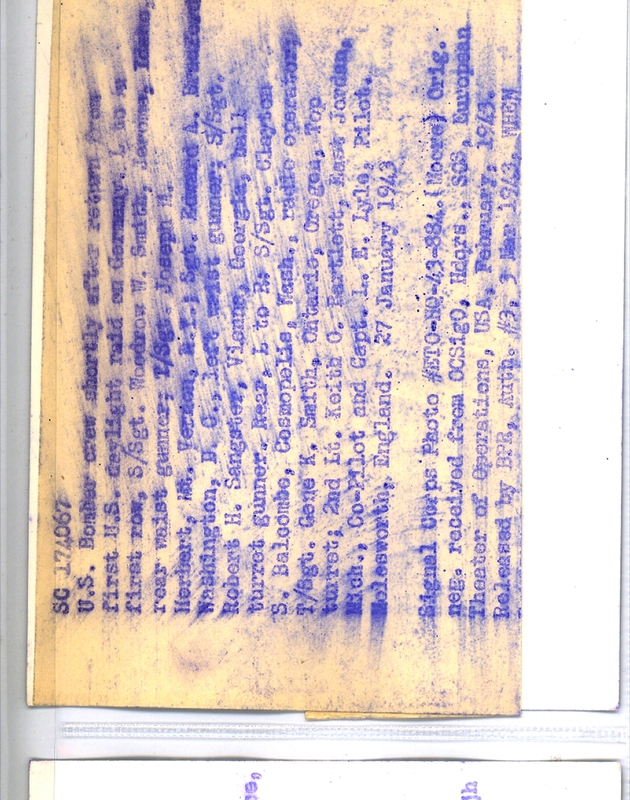 SC 174067
U.S. Bomber crew shortly after return from
first U.S. daylight raid on Germany. L to R
first row, S/Sgt. Woodrow W. Smith, Jerome,
rear waist gunner; T/Sgt. Joseph M.
Herbert, Mt. Vernon, N.Y.; Sgt. A.
Washington, D. C., left waist gunner; S/Sgt.
Robert H. Sangster, Vienna, Georgia, ball
turret gunner. Rear, L to R: S/Sgt. Clayton
S. Balcombe, Cosmopolis, Wash., radio operator;
T/Sgt. Gene K. Smith, Ontario, Oregon, Top
turret; 2nd Lt. Keith O. Bartlett, East Jordan,
Mich., Co-Pilot and Capt. L. E. Lyle, Pilot.
Molesworth, England. 27 January 1943
Signal Corps Photo #ETO-HQ-43-884. (Moore) Orig.
neg. received from OCSigO, Hdqrs., SOS, European
Theater of Operations, USA, February, 1943.
Released by BPR, Auth. #3. 5 Mar 1943. WHEN